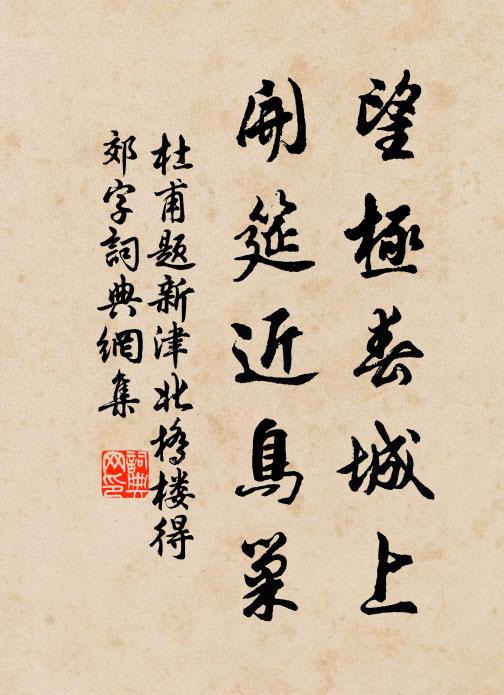 望極春城上
開筵近鳥巢
杜甫題新津北橋樓得
郊字詞典網集
詞典
网印